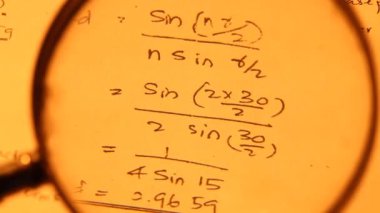 d = sin (nγ/2) / n sin γ/2
= sin (2 × 30/2) / 2 sin (30/2)
= 1 / 4 sin 15
= 0.9659